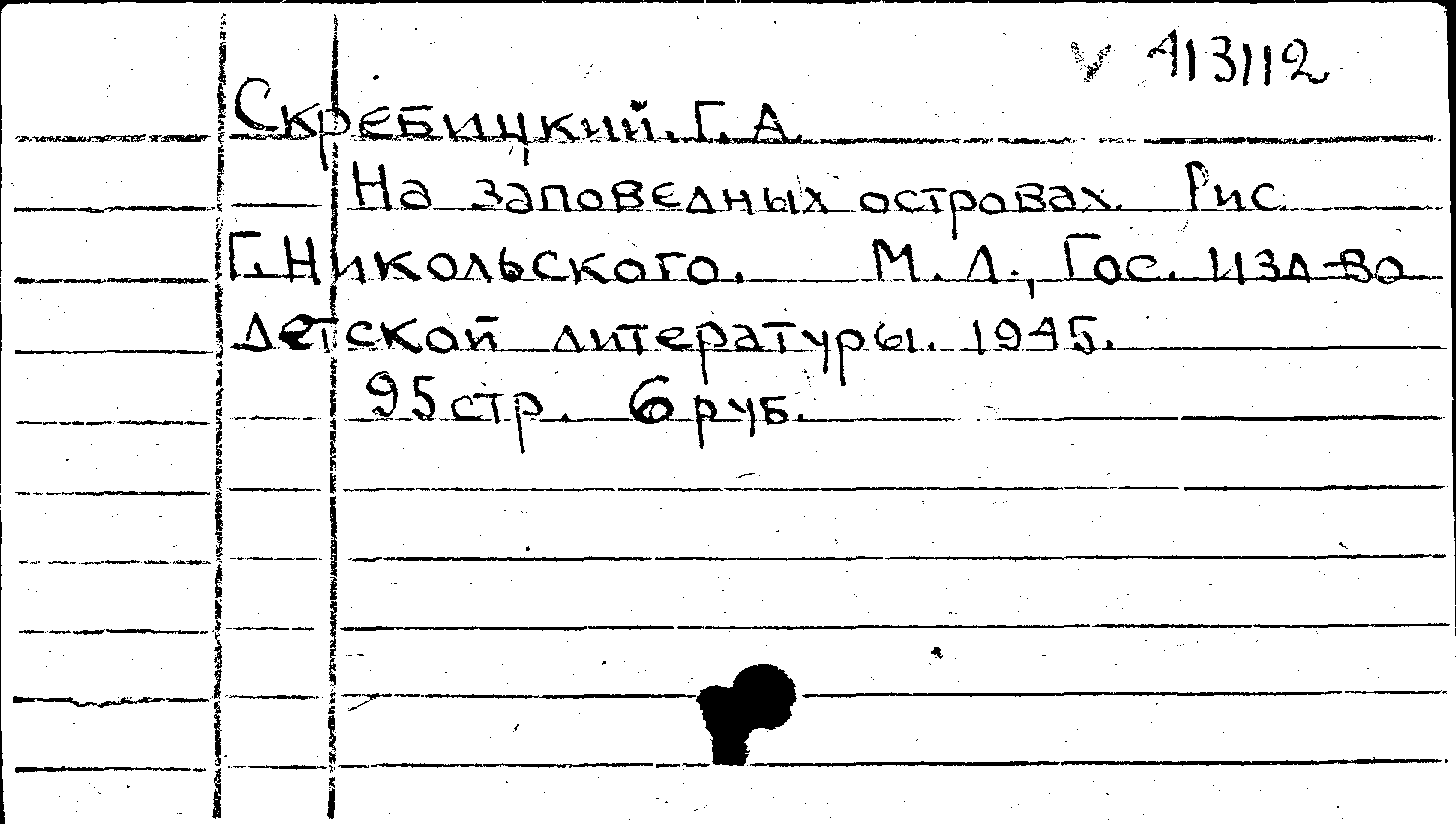 V 413112
Скребицкий. Г. А.
На заповедных островах. Рис.
Г. Никольского. М. Л., Гос. изд-во
детской литературы. 1945.
95 стр. 6 руб.